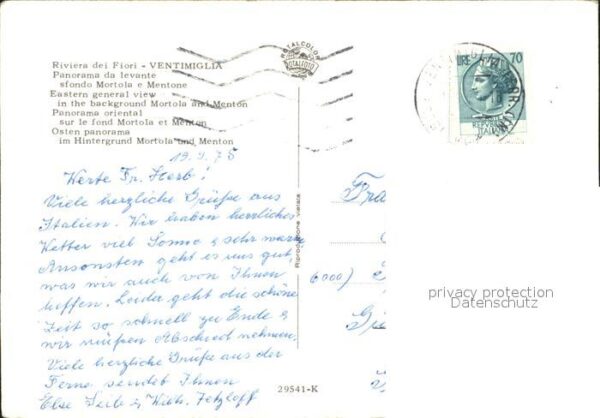 Riviera dei Fiori - VENTIMIGLIA
Panorama da levante
sfondo Mortola e Mentone
Eastern general view
in the background Mortola and Menton
Panorama oriental
sur le fond Mortola et Menton
Osten panorama
im Hintergrund Mortola und Menton
ROTALCOLOR
ROTALFOTO
LIRE 70
POSTE
REPUBBLICA
ITALIANA
19.9.75
Werte Fr. Herb!
Viele herzliche Grüße aus
Italien. Wir haben herrliches
Wetter viel Sonne & sehr warm
Ansonsten geht es uns gut,
was wir auch von Ihnen
hoffen. Leider geht die schöne
Zeit so schnell zu Ende &
wir müßen Abschied nehmen.
Viele herzliche Grüße aus der
Ferne sendet Ihnen
Else
Fra
6000)
Riproduzione vietata
29541-K
privacy protection
Datenschutz